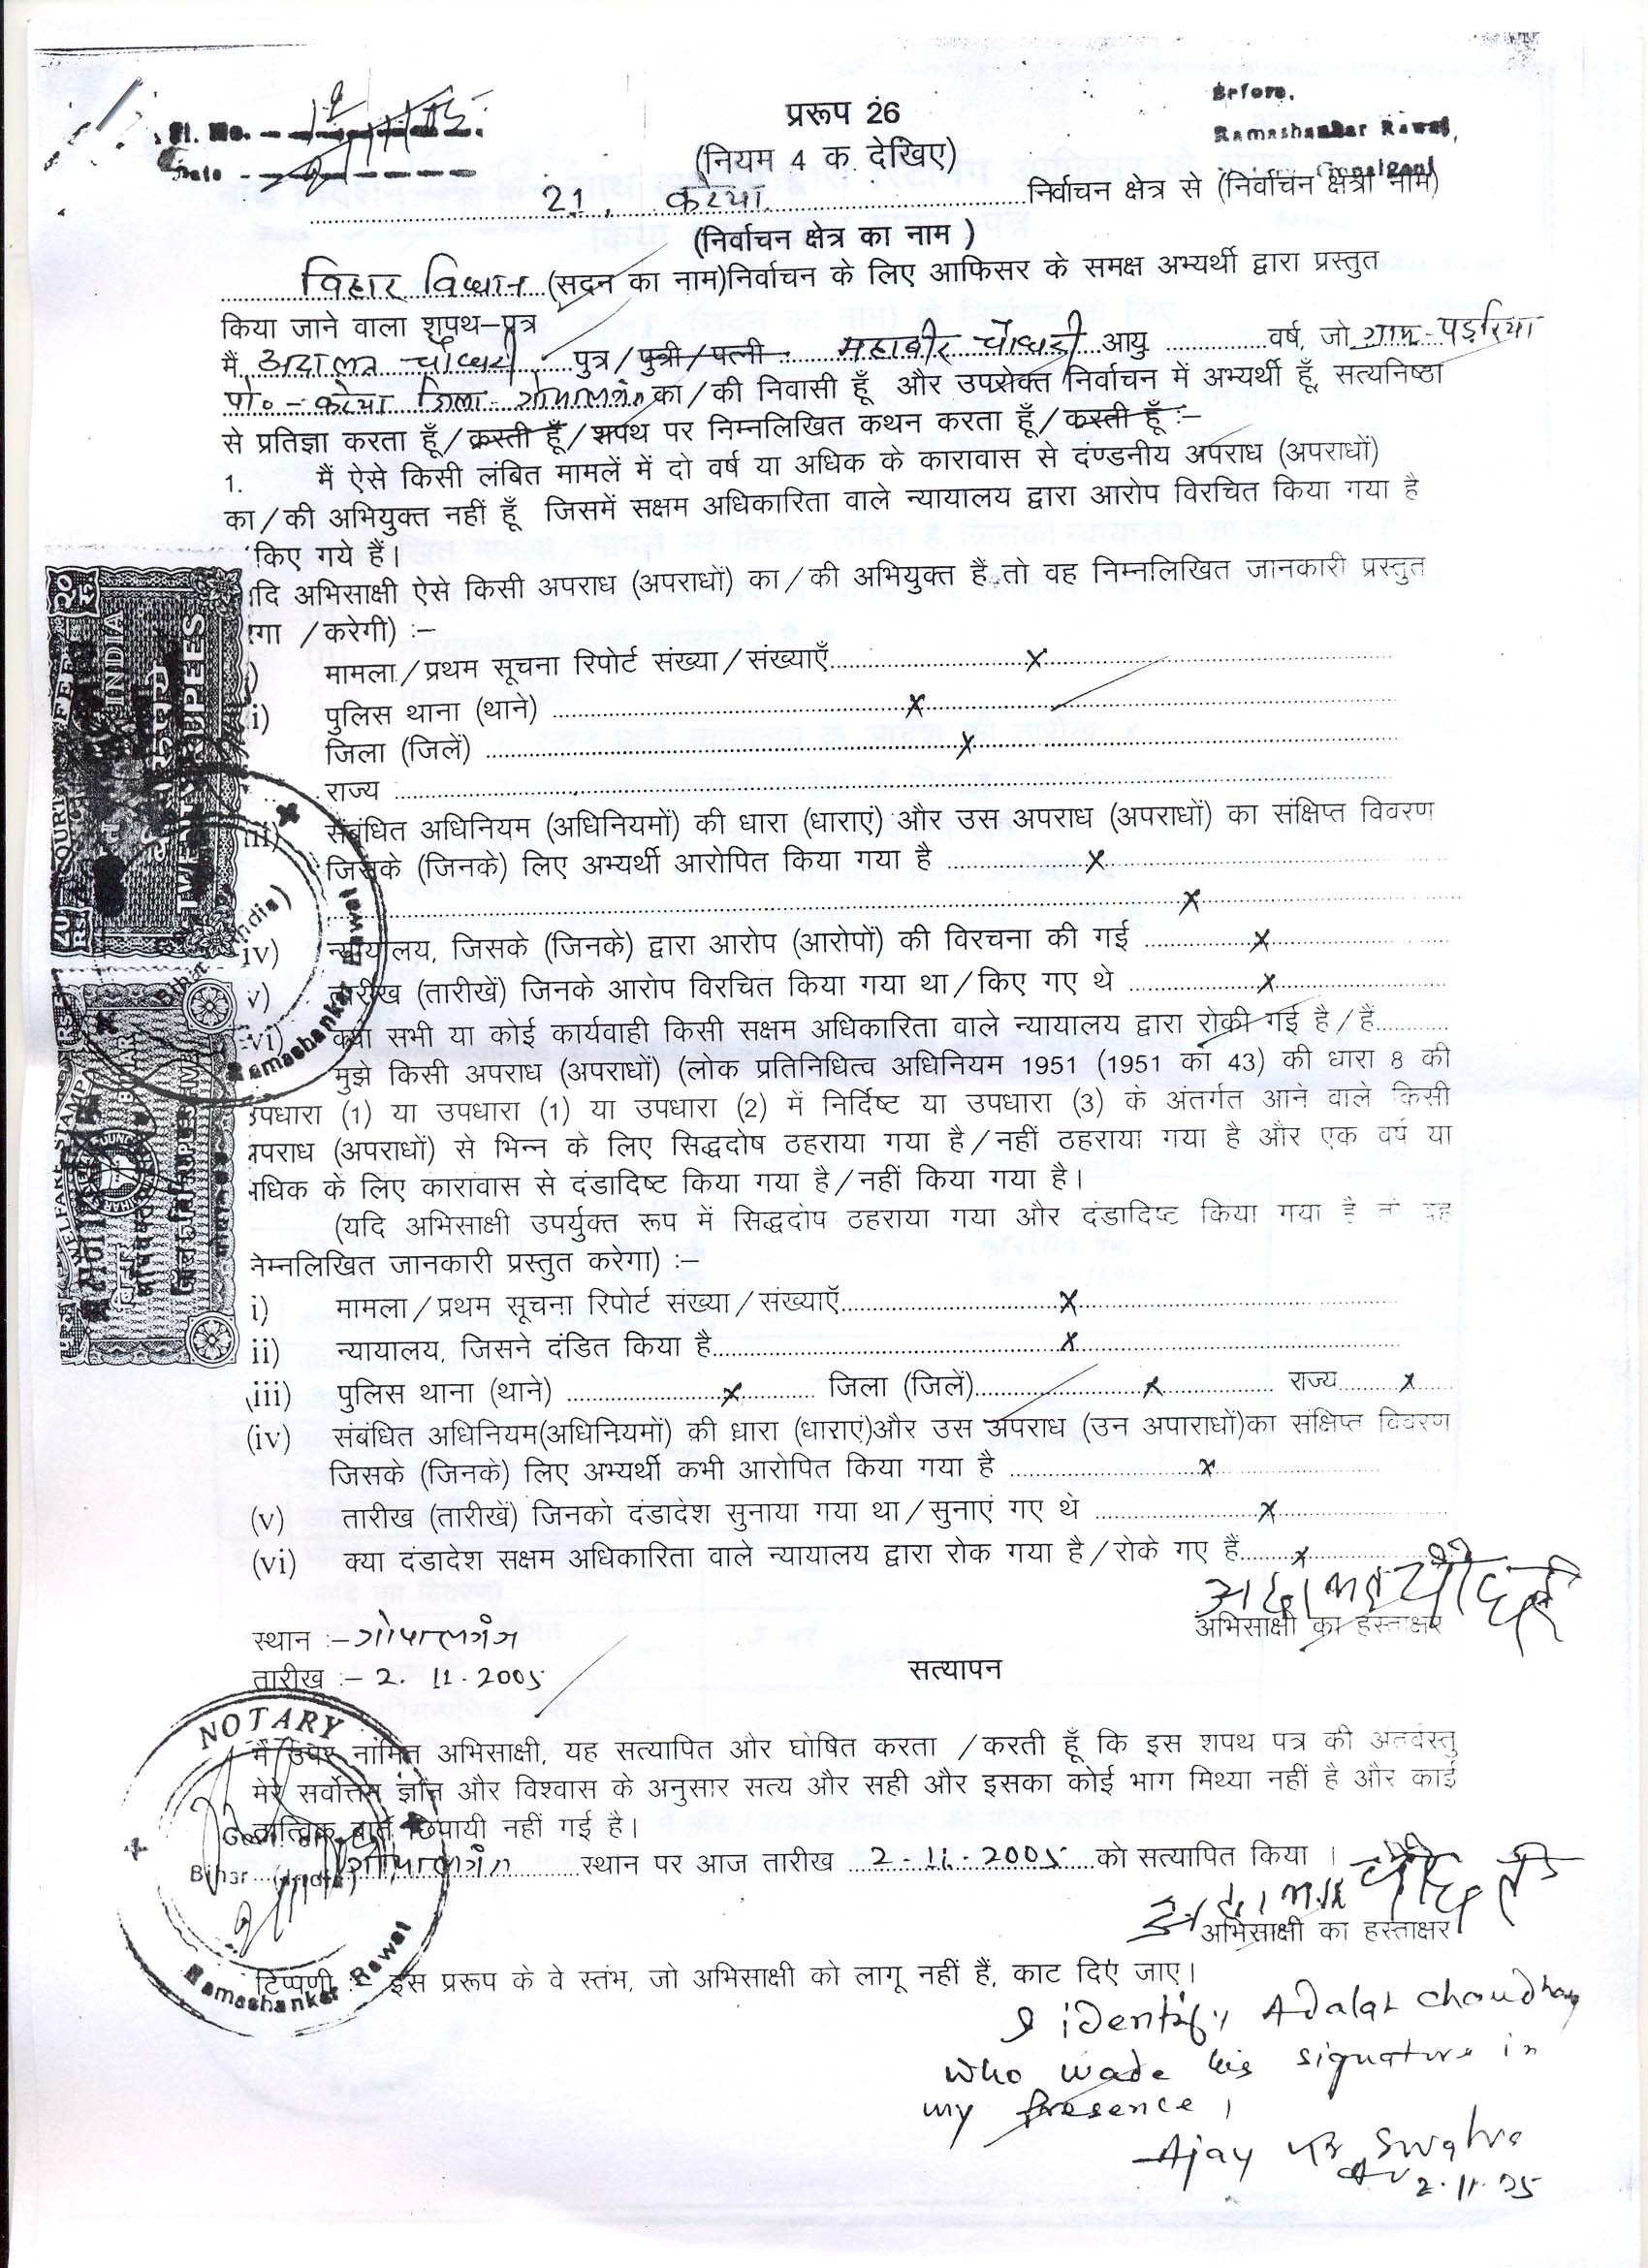 Sl. No.
Date
Before,
Ramashankar Rawal,
Gopalganj
प्ररूप 26
(नियम 4 क देखिए)
21, कटेया निर्वाचन क्षेत्र से (निर्वाचन क्षेत्रा नाम)
(निर्वाचन क्षेत्र का नाम )
विहार विधान (सदन का नाम)निर्वाचन के लिए आफिसर के समक्ष अभ्यर्थी द्वारा प्रस्तुत
किया जाने वाला शपथ–पत्र
मैं अदालत चौधरी पुत्र/पुत्री/पत्नी महाबीर चौधरी आयु वर्ष, जो ग्राम- पड़रिया
पो०-कटेया जिला- गोपालगंज का/की निवासी हूँ और उपरोक्त निर्वाचन में अभ्यर्थी हूँ, सत्यनिष्ठा
से प्रतिज्ञा करता हूँ/करती हूँ/शपथ पर निम्नलिखित कथन करता हूँ/करती हूँ :–
1. मैं ऐसे किसी लंबित मामलें में दो वर्ष या अधिक के कारावास से दंण्डनीय अपराध (अपराधों)
का/की अभियुक्त नहीं हूँ जिसमें सक्षम अधिकारिता वाले न्यायालय द्वारा आरोप विरचित किया गया है
किए गये हैं।
दि अभिसाक्षी ऐसे किसी अपराध (अपराधों) का/की अभियुक्त हैं तो वह निम्नलिखित जानकारी प्रस्तुत
गा /करेगी) :–
) मामला/प्रथम सूचना रिपोर्ट संख्या/संख्याएँ x
i) पुलिस थाना (थाने) x
जिला (जिलें) x
राज्य
iii) संबंधित अधिनियम (अधिनियमों) की धारा (धाराएं) और उस अपराध (अपराधों) का संक्षिप्त विवरण
जिसके (जिनके) लिए अभ्यर्थी आरोपित किया गया है x
x
iv) न्यायालय, जिसके (जिनके) द्वारा आरोप (आरोपों) की विरचना की गई x
v) तारीख (तारीखें) जिनके आरोप विरचित किया गया था/किए गए थे x
vi) क्या सभी या कोई कार्यवाही किसी सक्षम अधिकारिता वाले न्यायालय द्वारा रोकी गई है/हैं
मुझे किसी अपराध (अपराधों) (लोक प्रतिनिधित्व अधिनियम 1951 (1951 का 43) की धारा 8 की
उपधारा (1) या उपधारा (1) या उपधारा (2) में निर्दिष्ट या उपधारा (3) के अंतर्गत आने वाले किसी
पराध (अपराधों) से भिन्न के लिए सिद्धदोष ठहराया गया है/नहीं ठहराया गया है और एक वर्ष या
धिक के लिए कारावास से दंडादिष्ट किया गया है/नहीं किया गया है।
(यदि अभिसाक्षी उपर्युक्त रूप में सिद्धदोष ठहराया गया और दंडादिष्ट किया गया है तो वह
निम्नलिखित जानकारी प्रस्तुत करेगा) :–
i) मामला/प्रथम सूचना रिपोर्ट संख्या/संख्याएँ x
ii) न्यायालय, जिसने दंडित किया है x
iii) पुलिस थाना (थाने) x जिला (जिलें) x राज्य x
(iv) संबंधित अधिनियम(अधिनियमों) की धारा (धाराएं)और उस अपराध (उन अपाराधों)का संक्षिप्त विवरण
जिसके (जिनके) लिए अभ्यर्थी कभी आरोपित किया गया है x
(v) तारीख (तारीखें) जिनको दंडादेश सुनाया गया था/सुनाएं गए थे x
(vi) क्या दंडादेश सक्षम अधिकारिता वाले न्यायालय द्वारा रोक गया है/रोके गए हैं x
अदालत चौधरी
अभिसाक्षी का हस्ताक्षर
स्थान :– गोपालगंज
तारीख :– 2. 11. 2005
सत्यापन
मैं उपर नामित अभिसाक्षी, यह सत्यापित और घोषित करता /करती हूँ कि इस शपथ पत्र की अंतर्वस्तु
मेरे सर्वोत्तम ज्ञान और विश्वास के अनुसार सत्य और सही और इसका कोई भाग मिथ्या नहीं है और काई
तात्विक बात छिपायी नहीं गई है।
गोपालगंज स्थान पर आज तारीख 2-11-2005 को सत्यापित किया ।
अदालत चौधरी
अभिसाक्षी का हस्ताक्षर
टिप्पणी :– इस प्ररूप के वे स्तंभ, जो अभिसाक्षी को लागू नहीं हैं, काट दिए जाए।
I identify Adalat Choudhary
who made his signature in
my presence,
Ajay
2.11.05
NOTARY
Bihar (India)
Ramashankar Rawal
Bihar (India)
Ramashankar Rawal
INDIA
TWENTY RUPEES
20
RS
COURT FEE
WELFARE STAMP
BIHAR